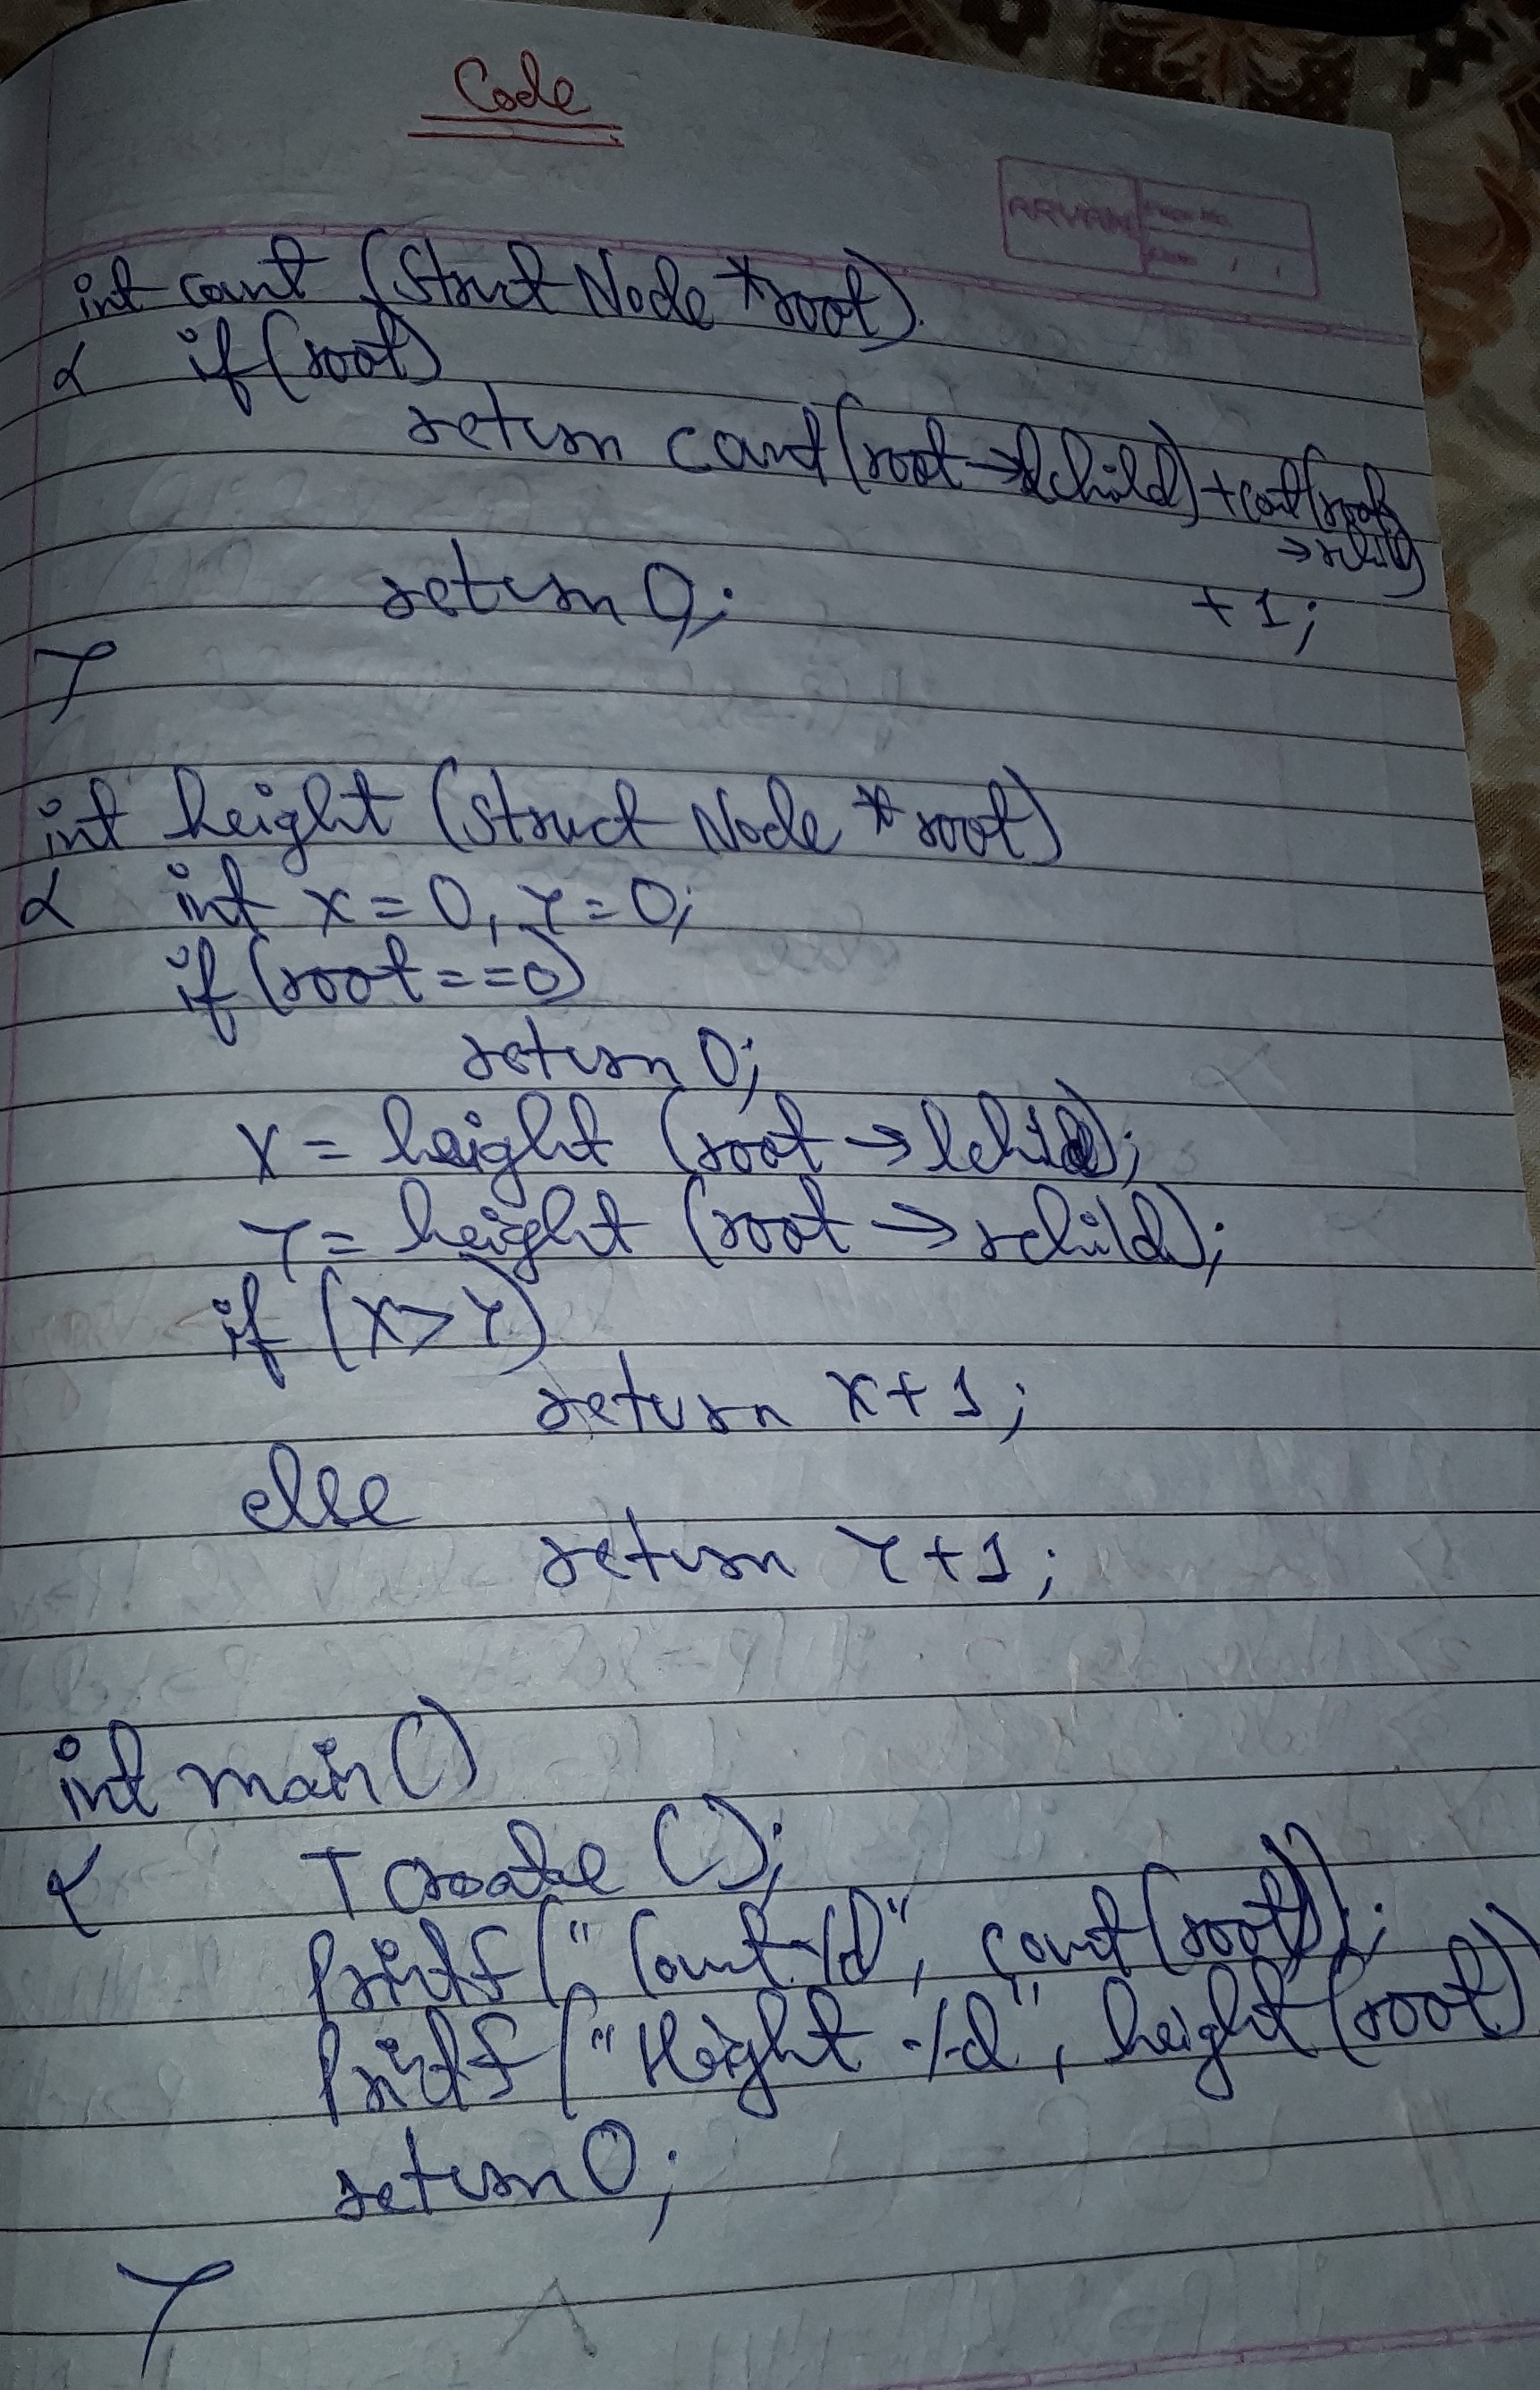 Code
ARVAN Page No.
Date / /
int count (Struct Node *root)
{ if(root)
return count(root→lchild)+count(root
→rchild)
return 0; +1;
}
int height (struct Node *root)
{ int x=0, y=0;
if(root==0)
return 0;
x= height (root→lchild);
y= height (root→rchild);
if (x>y)
return x+1;
else
return y+1;
int main()
{ Tcreate();
printf("Count %d", count(root));
printf("Height %d", height(root))
return 0;
}